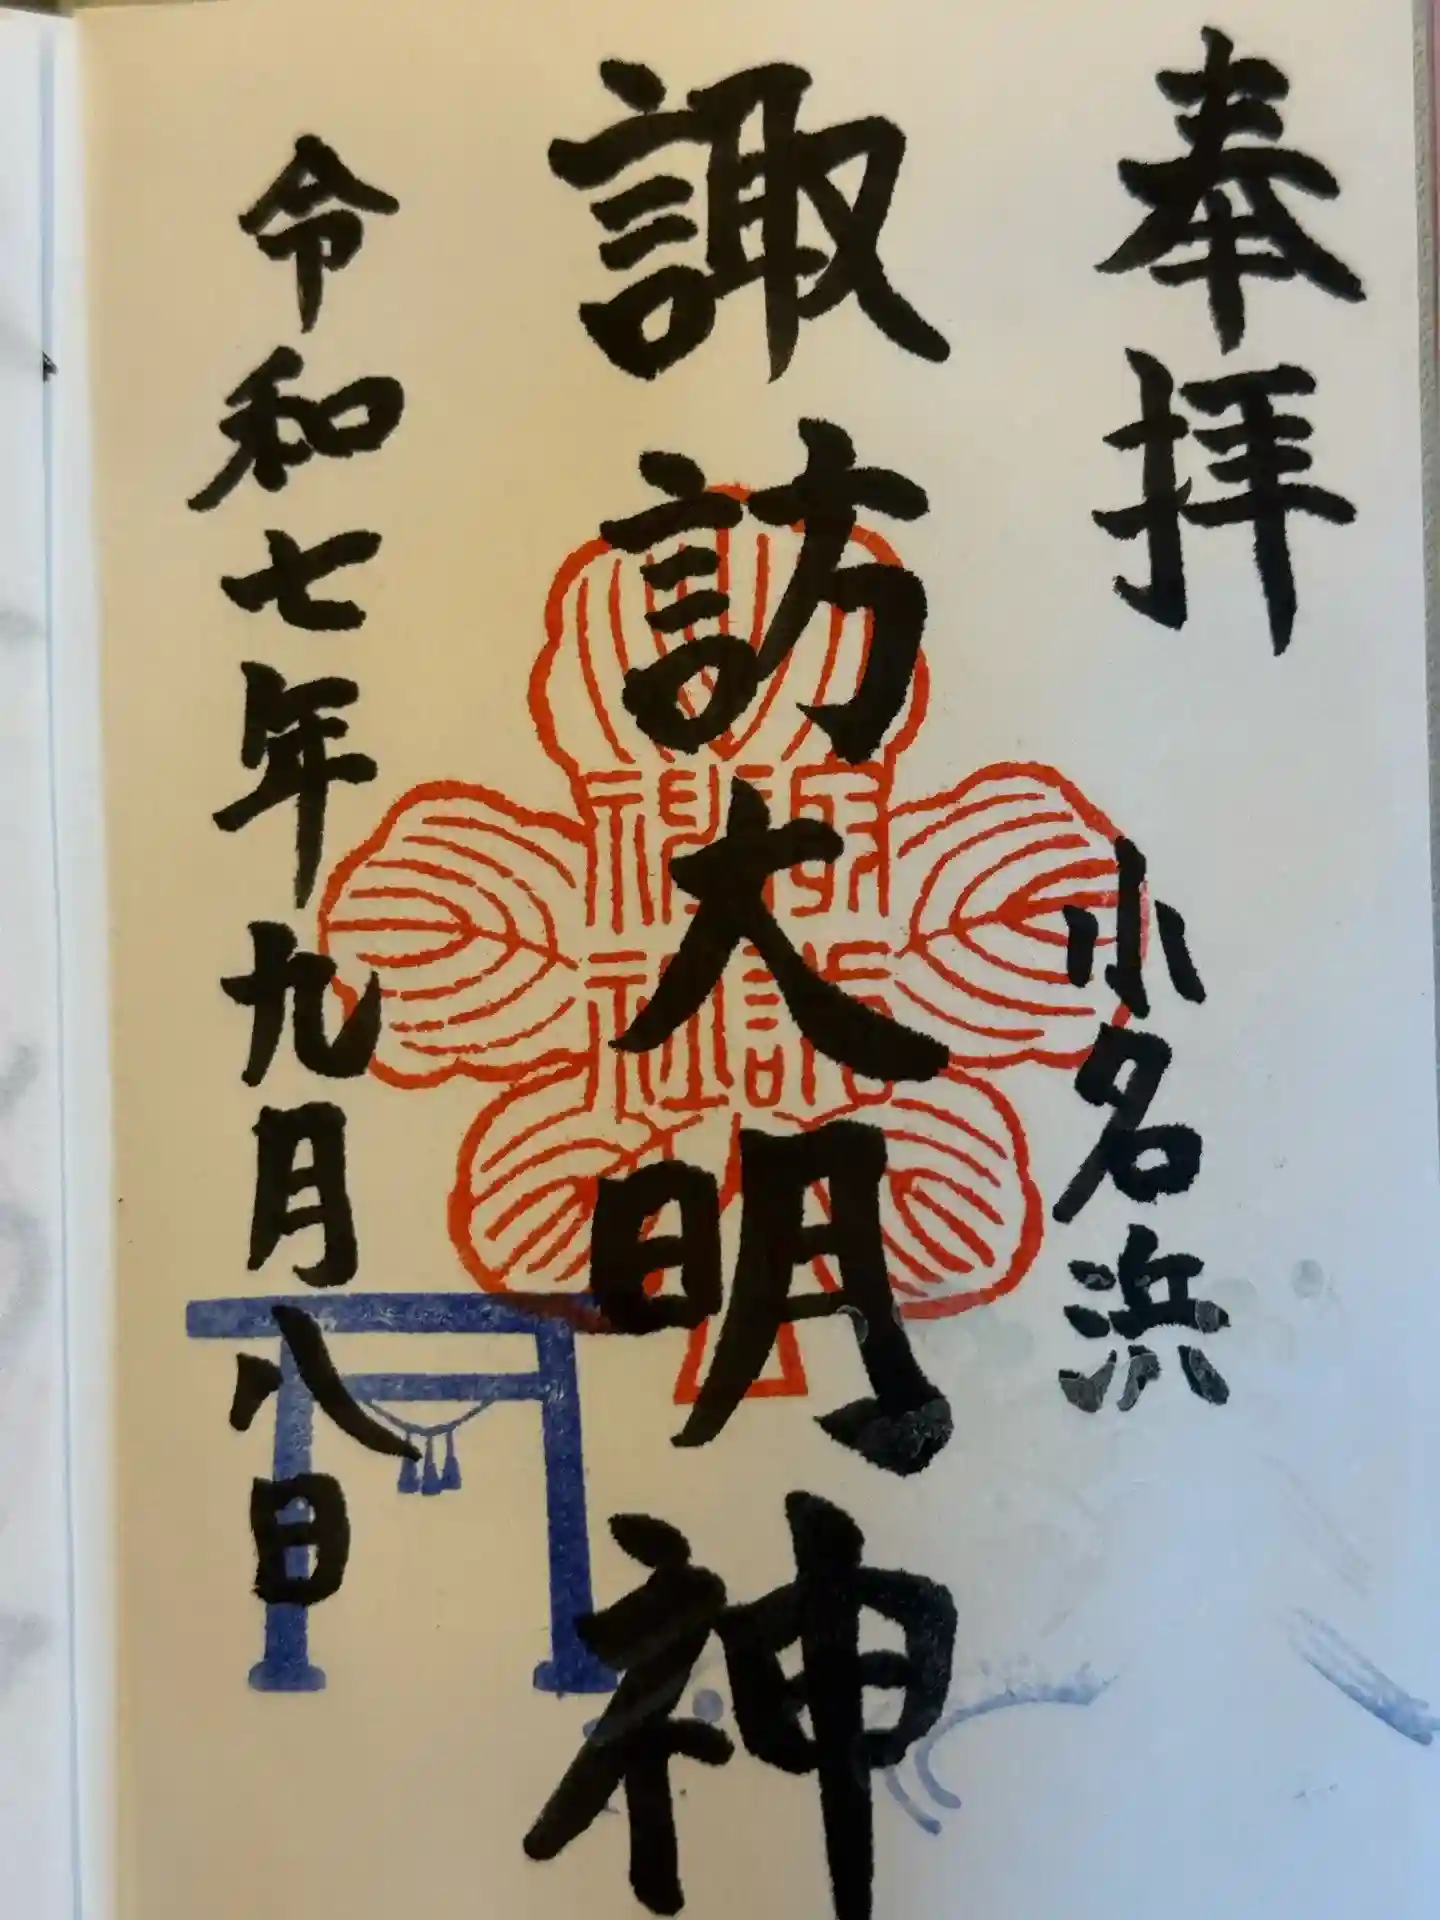 奉拝
小名浜
諏訪大明神
諏訪神社
令和七年九月八日